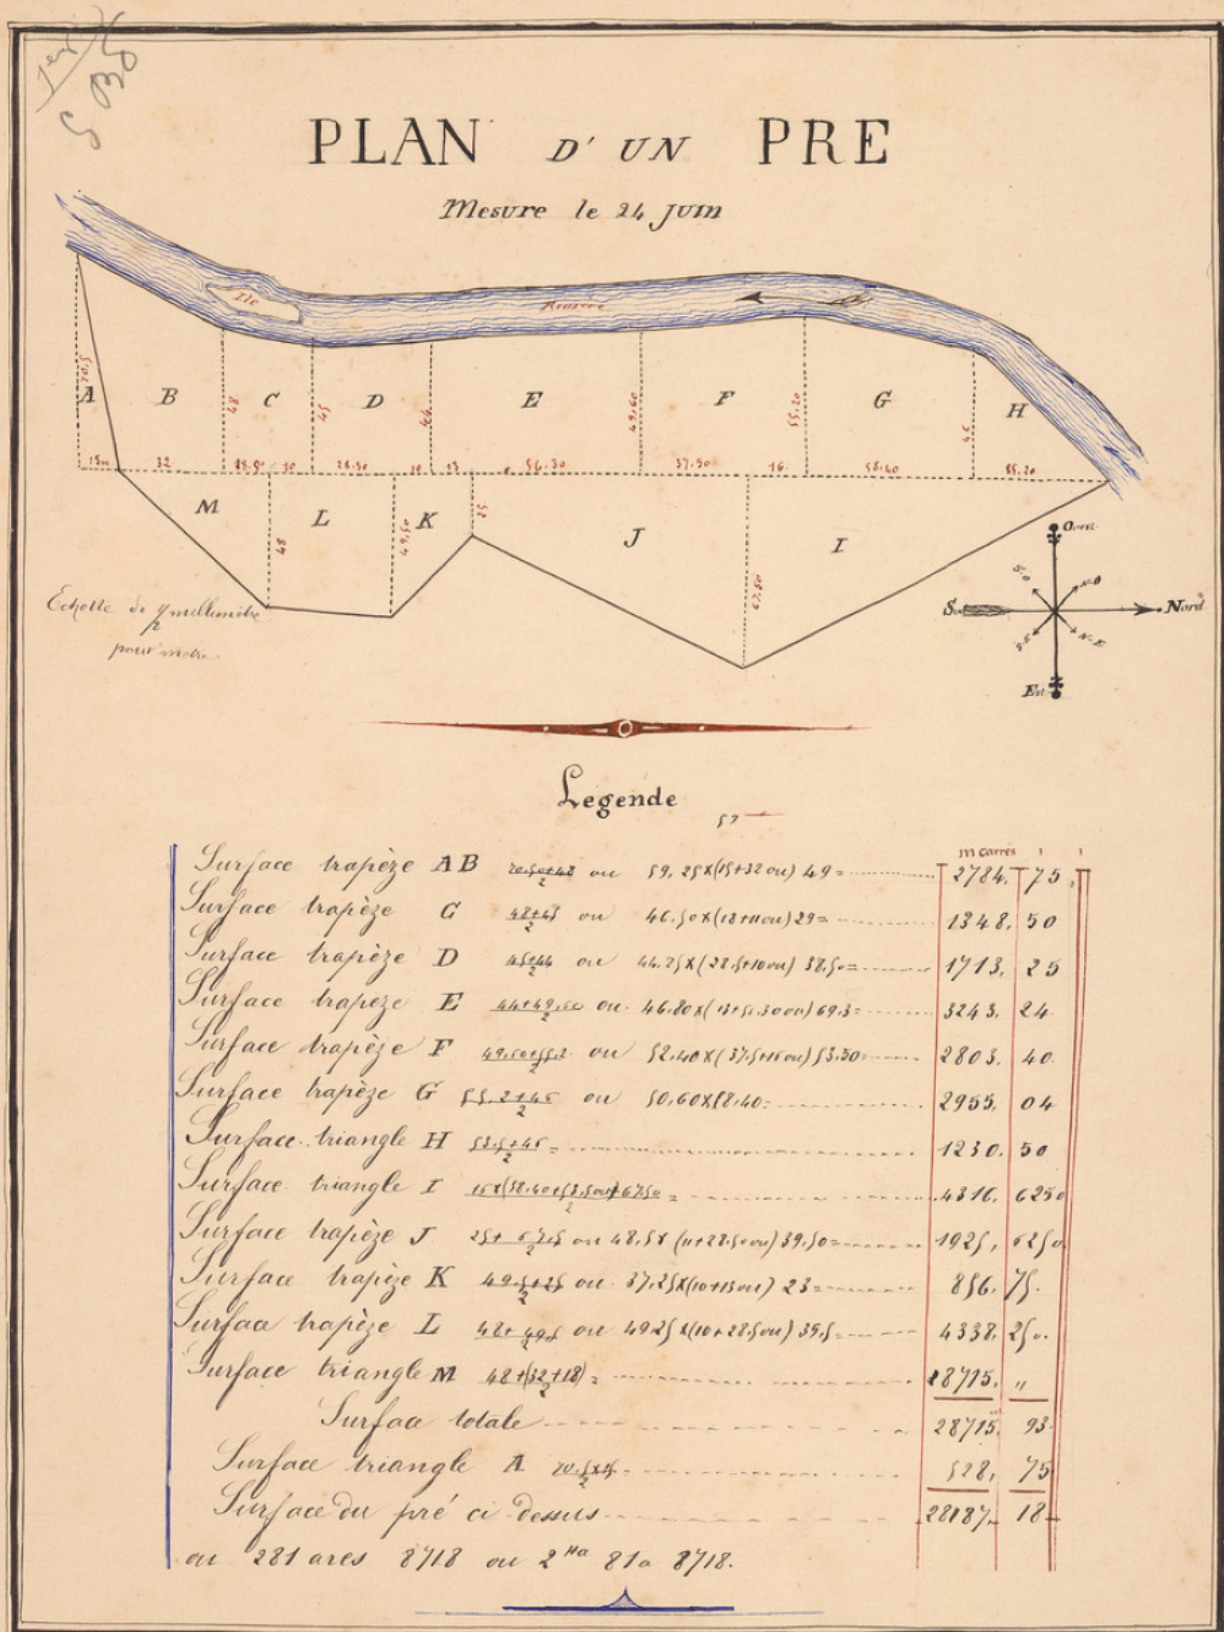 PLAN D' UN PRE
Mesure le 24 Juin
Ile
A B C D E F G H
48 45 44 49.60 55.20 45
32 10 28.50 10 13 56.30 37.50 16. 58.40
M L K J I
48 49.50 25 67.50
Echelle de
millimètre
pour mètre.
Ouest
S-O N-O
Nord
N-E
Est
Legende
m carrés
Surface trapèze AB 70.50+48/2 ou 59,25x(15+32 ou) 49= 2784, 75
Surface trapèze C 48+45/2 ou 46.50x(18+11 ou) 29= 1348, 50
Surface trapèze D 45+44/2 ou 44.25x(28.5+10 ou) 38.50= 1713, 25
Surface trapèze E 44+49.60/2 ou 46.80x(13+56.30 ou) 69.3= 3243, 24
Surface trapèze F 49.60+55.2/2 ou 52.40x(37.5+16 ou) 53.50= 2803, 40
Surface trapèze G 55.2+46/2 ou 50.60x58.40= 2955, 04
Surface triangle H = 1230, 50
Surface triangle I = 4316, 6250
Surface trapèze J ou 48.5x (11+28.50 ou) 39,50= 1925, 6250
Surface trapèze K 49.5+25/2 ou 37.25x(10+13 ou) 23= 856, 75.
Surface trapèze L 48+49.5/2 ou 49.25x(10+28.5 ou) 35,5= 4338, 250.
Surface triangle M 48+(32+18)/2 = 18715, "
Surface totale 28715, 93
Surface triangle A = 528, 75
Surface du pré ci-dessus 28187, 18
ou 281 ares 8718 ou 2 Ha 81a 8718.